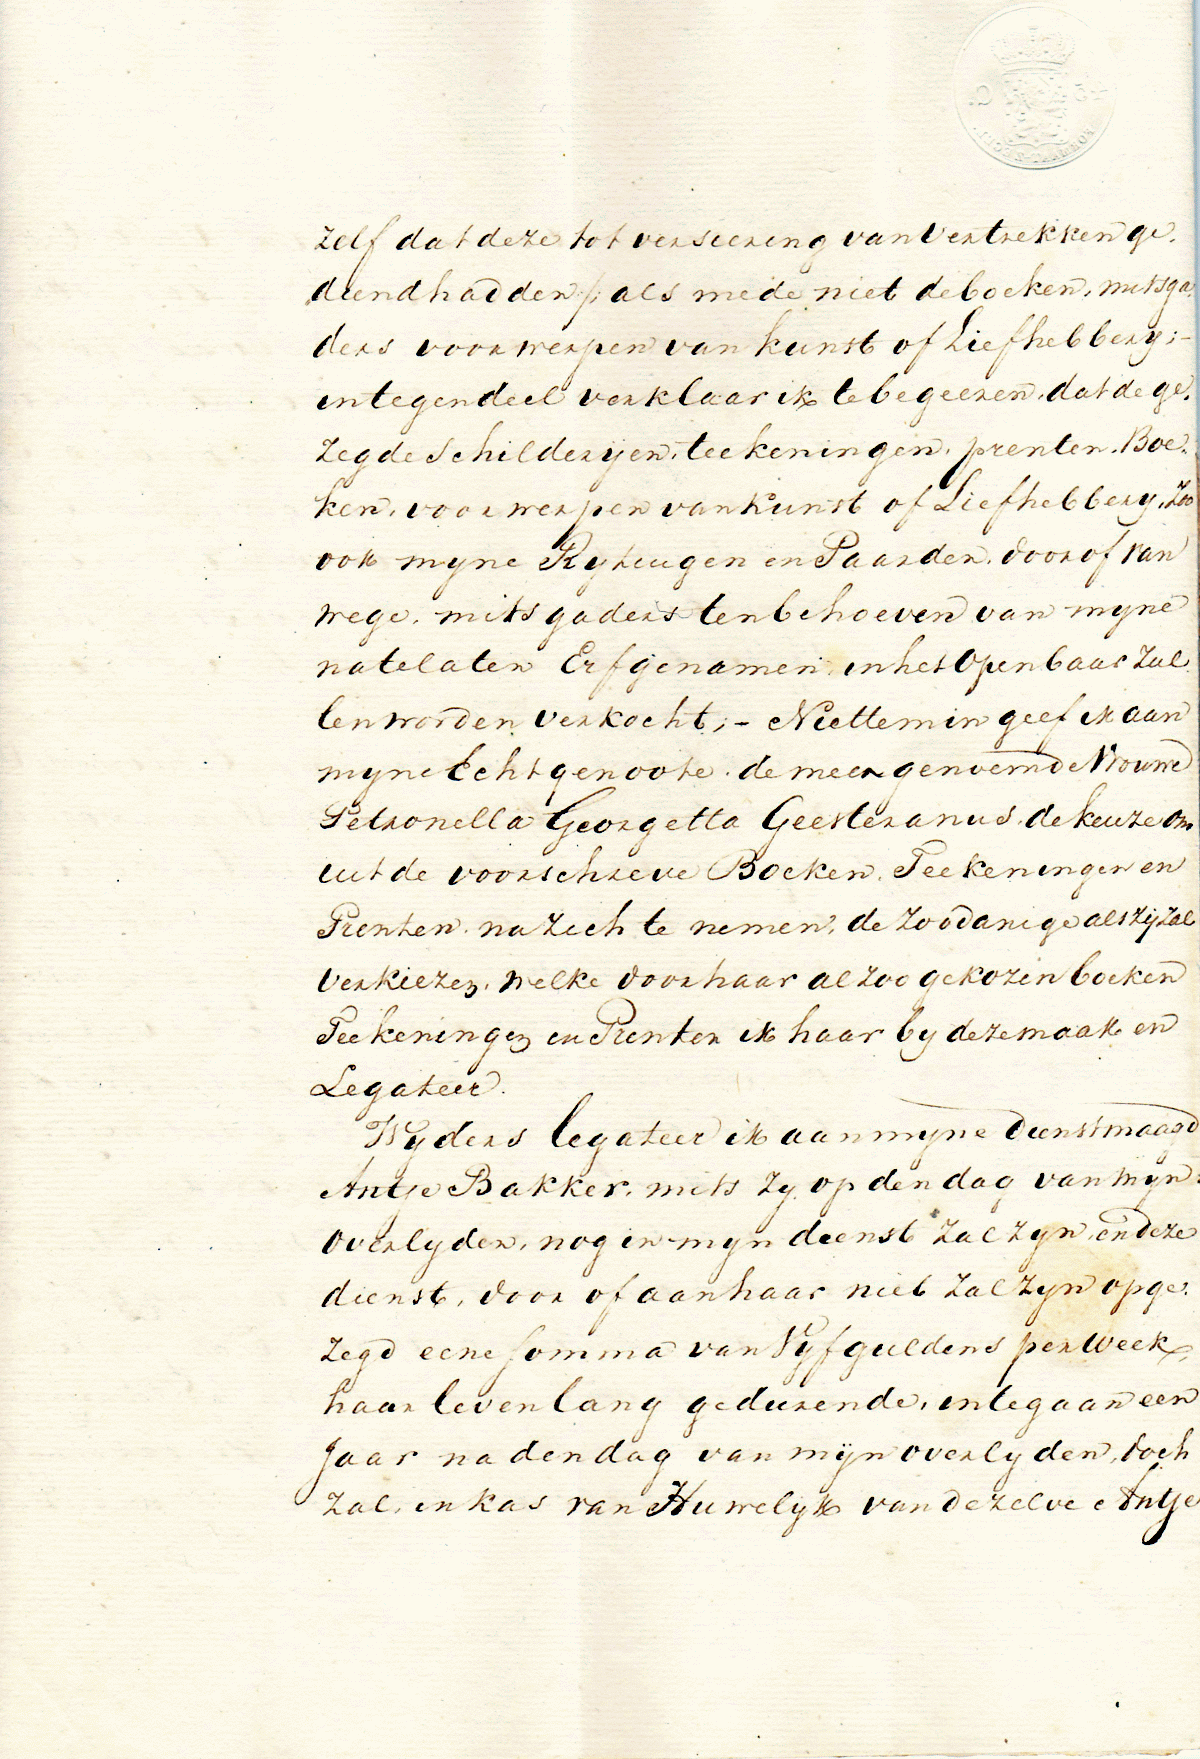 zelf dat deze tot versiering van Vertrekken ge-
diend hadden /: als mede niet de boeken, mitsga-
ders voorwerpen van kunst of Liefhebbery;-
integendeel verklaar ik te begeeren, dat de ge-
zegde Schilderyen, teekeningen, prenten, Boe-
ken, voorwerpen van kunst of Liefhebbery, Zoo
ook myne Rytuigen en Paarden, door of van
wege, mitsgaders ten behoeven van myne
natelaten Erfgenamen, in het Openbaar zul-
len worden verkocht;- Niettemin geef ik aan
myne Echtgenoote, de meergenoemde Vrouwe
Petronella Georgetta Geesteranus, de keuze om
uit de voorschreve Boeken, Teekeningen en
Prenten, na zich te nemen, de zoodanige als zij zal
verkiezen, welke door haar alzoo gekozen boeken
Teekeningen en Prenten ik haar by deze maak en
Legateer.
Wyders legateer ik aan myne dienstmaagd
Antje Bakker, mits zy op den dag van myn
Overlyden, nog in myn dienst zal zyn, en deze
dienst, door of aan haar niet zal zyn opge-
zegd eene somma van Vyf guldens per Week,
haar leven lang gedurende, integaan een
Jaar na den dag van mijn overlyden, doch
zal, in kas van Huwelyk van dezelve Antje